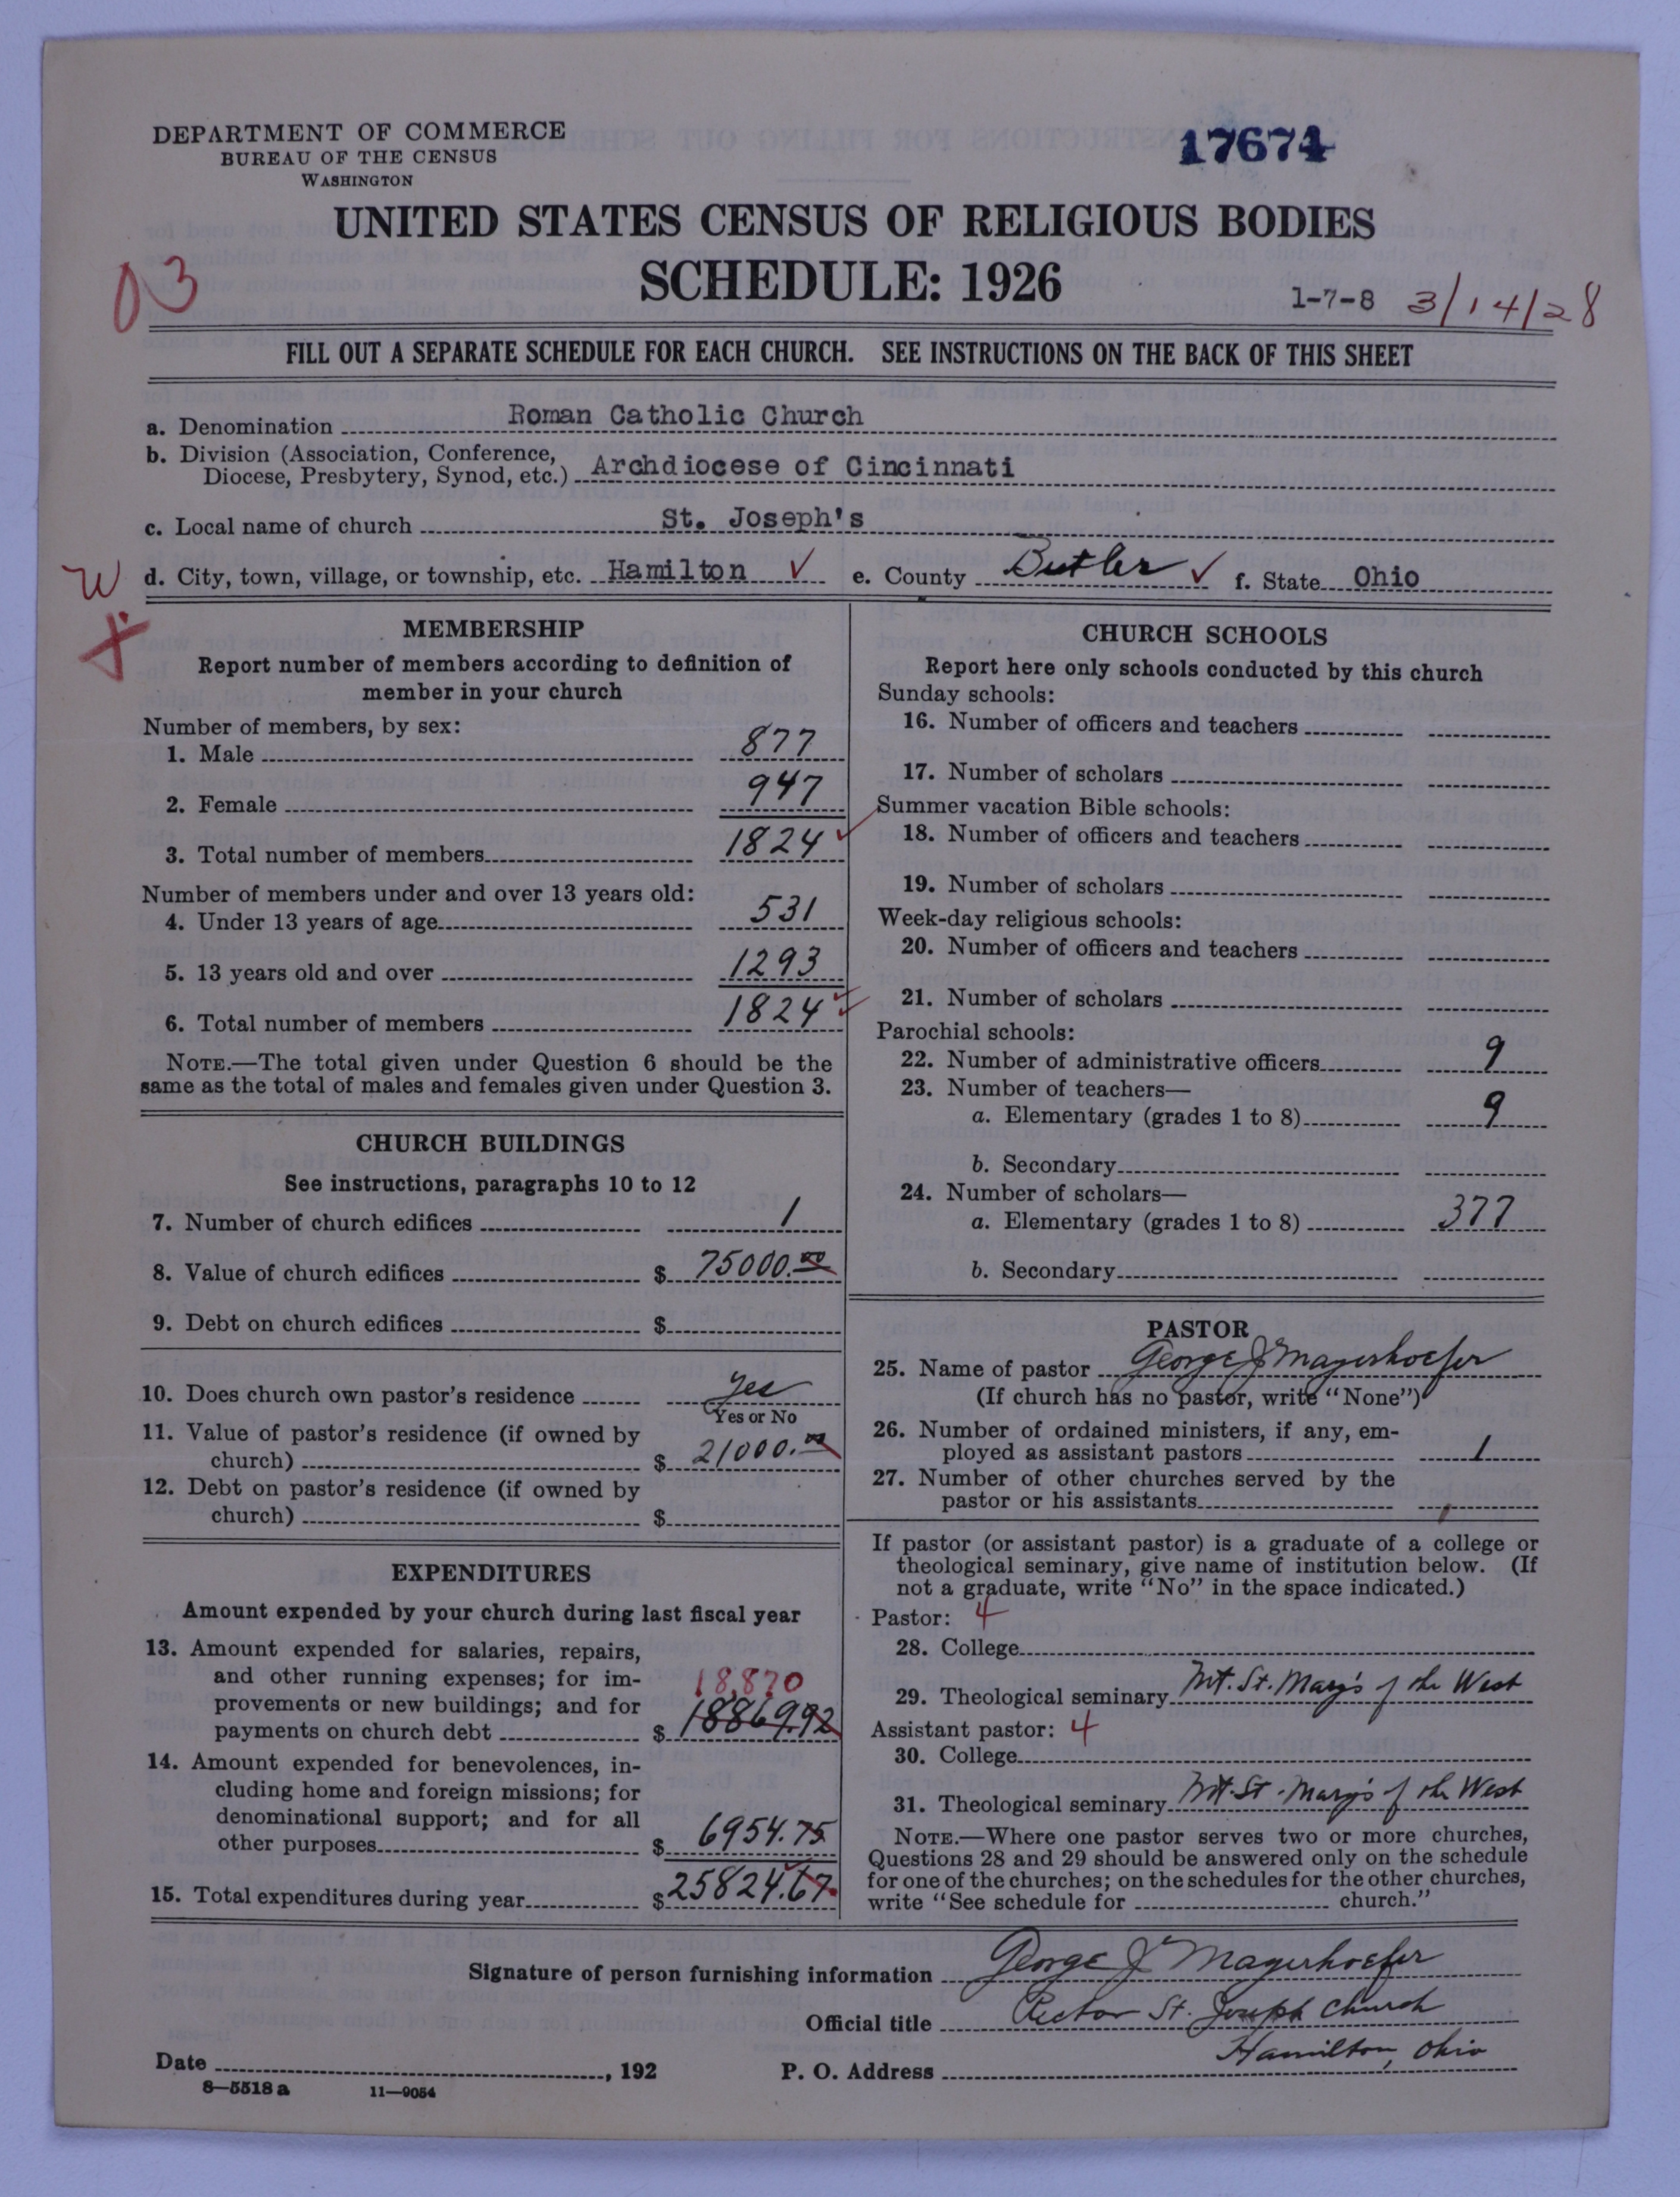 DEPARTMENT OF COMMERCE
BUREAU OF THE CENSUS
WASHINGTON
17674
UNITED STATES CENSUS OF RELIGIOUS BODIES
SCHEDULE: 1926
03
1-7-8 3/14/28
FILL OUT A SEPARATE SCHEDULE FOR EACH CHURCH. SEE INSTRUCTIONS ON THE BACK OF THIS SHEET
a. Denomination Roman Catholic Church
b. Division (Association, Conference,
Diocese, Presbytery, Synod, etc.) Archdiocese of Cincinnati
c. Local name of church St. Joseph's
W d. City, town, village, or township, etc. Hamilton ✓ e. County Butler ✓ f. State Ohio
MEMBERSHIP
Report number of members according to definition of
member in your church
Number of members, by sex:
1. Male 877
2. Female 947
3. Total number of members 1824 ✓
Number of members under and over 13 years old:
4. Under 13 years of age 531
5. 13 years old and over 1293
6. Total number of members 1824 ✓
NOTE.—The total given under Question 6 should be the
same as the total of males and females given under Question 3.
CHURCH BUILDINGS
See instructions, paragraphs 10 to 12
7. Number of church edifices 1
8. Value of church edifices $ 75000.00
9. Debt on church edifices $
10. Does church own pastor's residence yes
Yes or No
11. Value of pastor's residence (if owned by
church) $ 21000.00
12. Debt on pastor's residence (if owned by
church) $
EXPENDITURES
Amount expended by your church during last fiscal year
13. Amount expended for salaries, repairs,
and other running expenses; for im-
provements or new buildings; and for
18,870
payments on church debt $ 18869.92
14. Amount expended for benevolences, in-
cluding home and foreign missions; for
denominational support; and for all
other purposes $ 6954.75
15. Total expenditures during year $ 25824.67
CHURCH SCHOOLS
Report here only schools conducted by this church
Sunday schools:
16. Number of officers and teachers
17. Number of scholars
Summer vacation Bible schools:
18. Number of officers and teachers
19. Number of scholars
Week-day religious schools:
20. Number of officers and teachers
21. Number of scholars
Parochial schools:
22. Number of administrative officers 9
23. Number of teachers—
a. Elementary (grades 1 to 8) 9
b. Secondary
24. Number of scholars—
a. Elementary (grades 1 to 8) 377
b. Secondary
PASTOR
25. Name of pastor George J Mayerhoefer
(If church has no pastor, write "None")
26. Number of ordained ministers, if any, em-
ployed as assistant pastors 1
27. Number of other churches served by the
pastor or his assistants
If pastor (or assistant pastor) is a graduate of a college or
theological seminary, give name of institution below. (If
not a graduate, write "No" in the space indicated.)
Pastor: 4
28. College
29. Theological seminary Mt. St. Mary's of the West
Assistant pastor: 4
30. College
31. Theological seminary Mt. St. Mary's of the West
NOTE.—Where one pastor serves two or more churches,
Questions 28 and 29 should be answered only on the schedule
for one of the churches; on the schedules for the other churches,
write "See schedule for church."
Signature of person furnishing information George J Mayerhoefer
Official title Rector St. Joseph Church
Hamilton, Ohio
Date , 192 P. O. Address
8—5518 a 11—9054